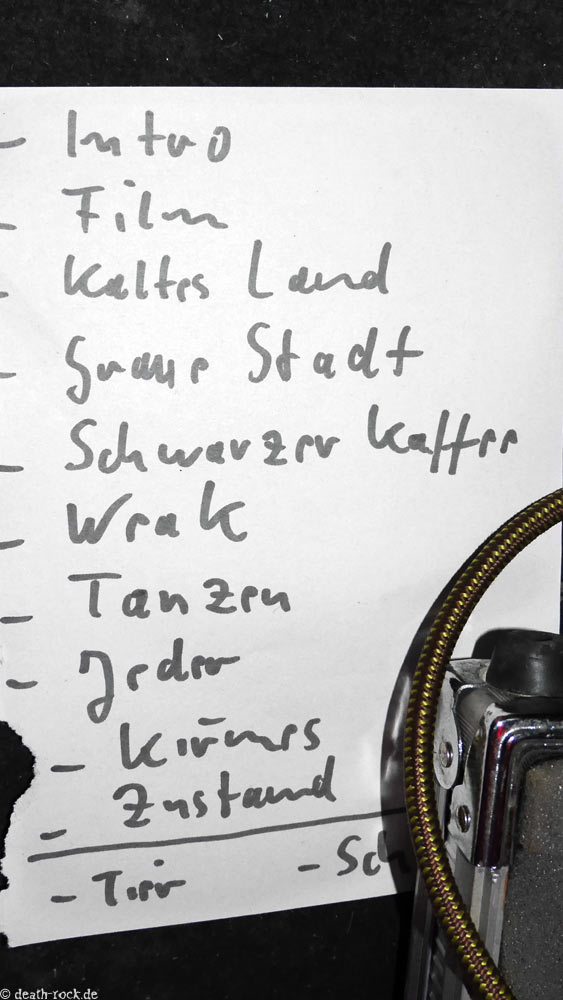 - Intro
- Film
- Kaltes Land
- Graue Stadt
- Schwarzer Kaffee
- Weak
- Tanzen
- Jeder
- Kirmes
- Zustand
- Tier - Sch
© death-rock.de